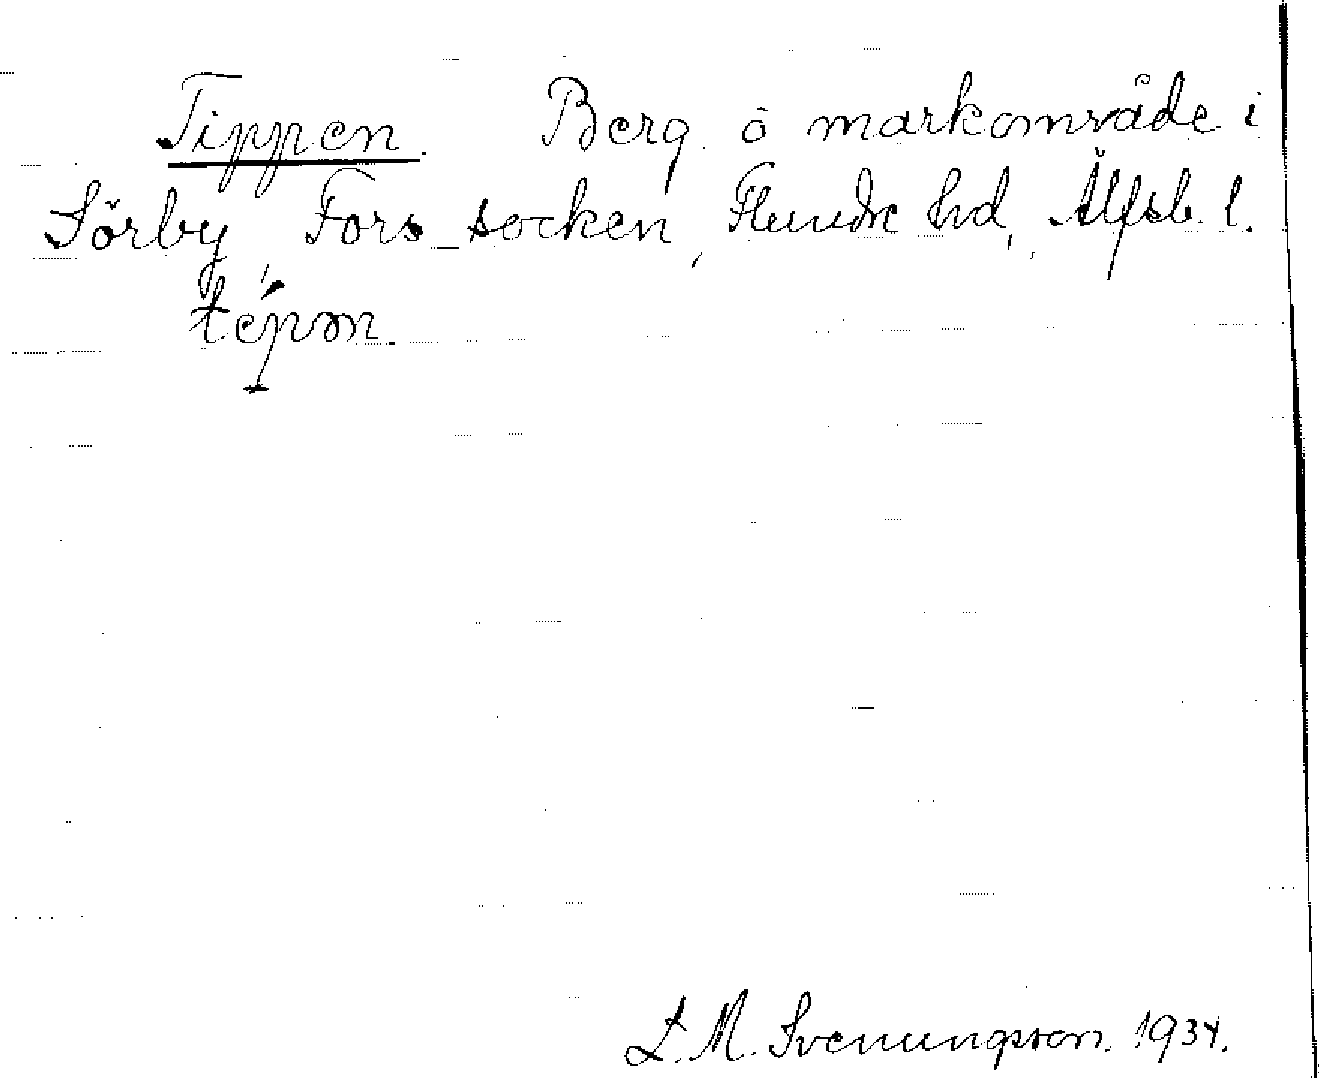 Tippen. Berg. o markområde i
Sörby, Fors socken, Flundre hrd, Älfsb. l.
L. M. Svenungsson. 1934.